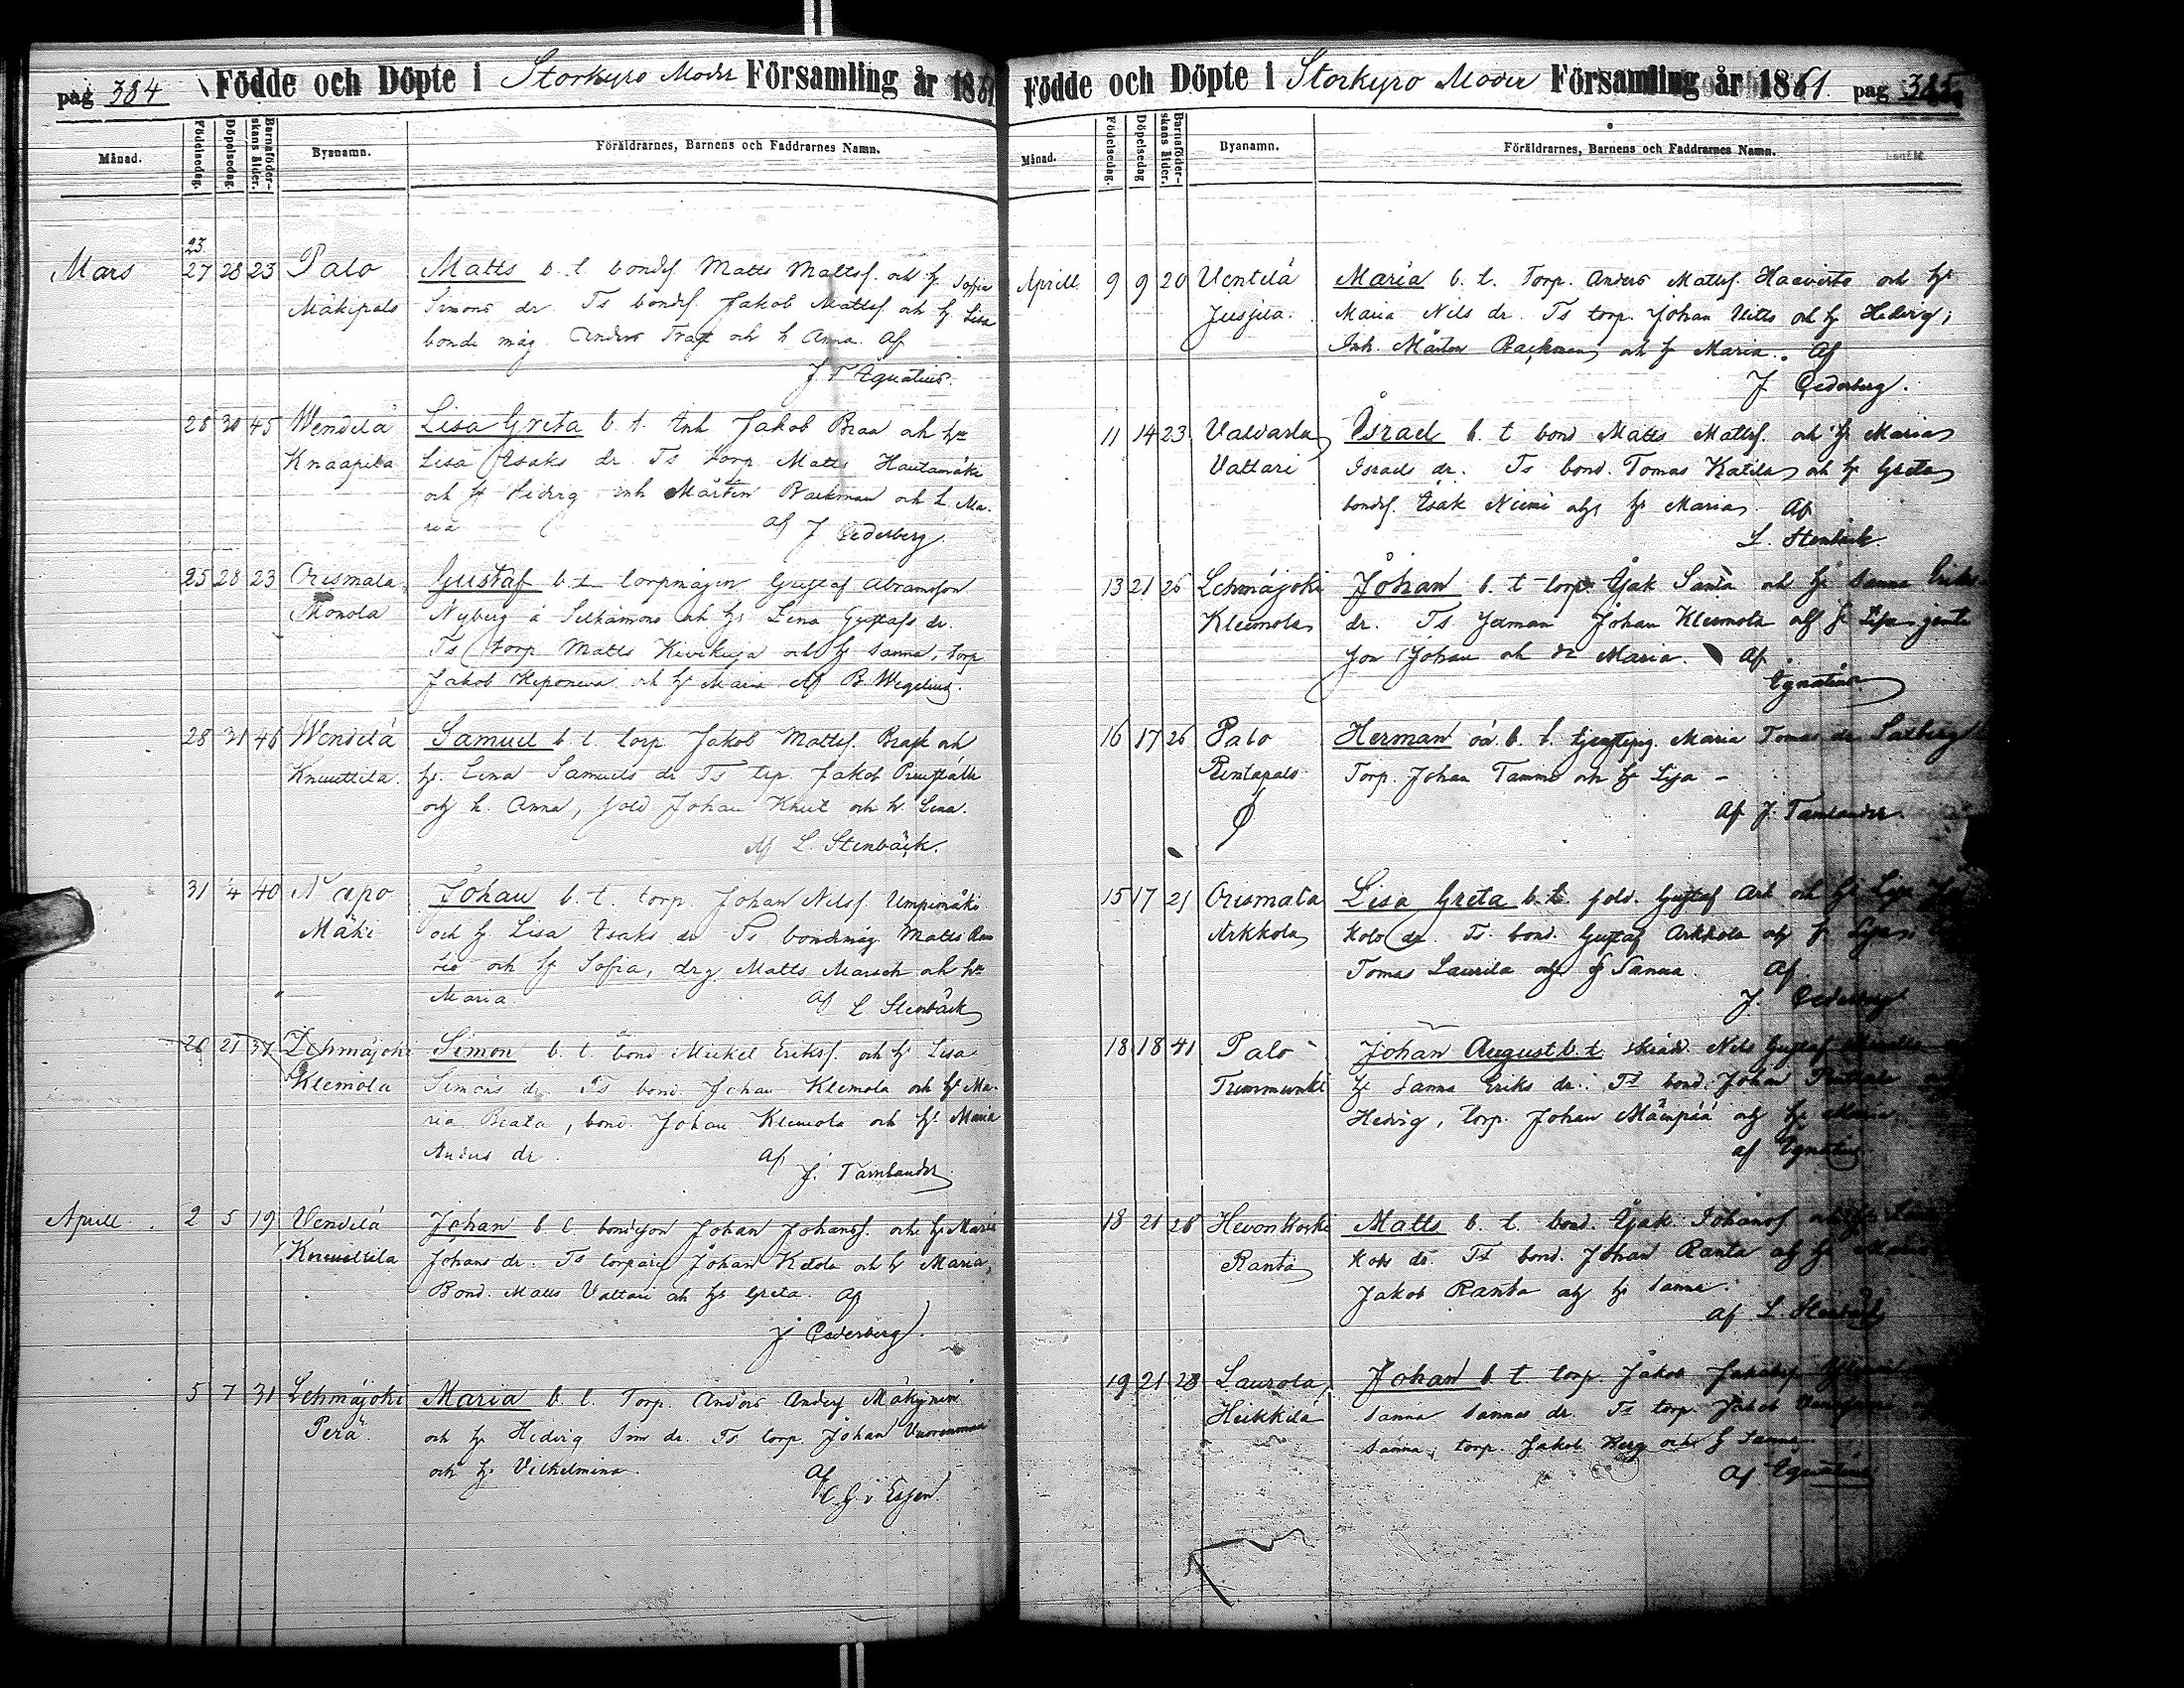 pag 384 Födde och Döpte i Storkyro Moder Församling år 1861
Månad. Födelsedag. Döpelsedag. Barnaföderskans ålder. Byanamn. Föräldrarnes, Barnens och Faddrarnes Namn.
23
Mars 27 28 23 Palo Matts b. t. bondes. Matts Mattss. och h. Sofia
Mäkipalo Simons dr. Ts bondes. Jakob Mattss. och h. Lisa
bonde måg Anders och h Anna. Af
J. Ignatius.
28 30 45 Wendelä Lisa Greta b. t. Inh Jakob Braa och hu
Knaapila Lisa Isaks dr. Ts torp Matts Hautamäki
och h Hedvig inh Mårten Backman och h. Ma-
ria af J Cederberg.
25 28 23 Orismala Gustaf b. t. torpmågen Gustaf Abramsson
Monola Nyberg å och h. Lina Gustafs dr.
Ts torp Matts Kivikuja och h Sanna, torp
Jakob och h Maria Af B. Wegelius.
28 31 46 Wendelä Samuel b. t. torp Jakob Mattss. Brask och
Knuuttila. h. Lina Samuels dr Ts trp. Jakob
och h. Anna, sold Johan Knut och h. Lina.
Af L. Stenbäck.
31 4 40 Napo Johan b. t. torp. Johan Nilss.
Mäki och h. Lisa Isaks dr Ts bondmåg Matts
och h Sofia, drg Matts Marsch och hu
Maria. af L Stenbäck
20 21 37 Lehmäjoki Simon b. t. bond Mickel Erikss. och h. Lisa
Klemola Simons dr. Ts bond. Johan Klemola och h. Ma-
ria Beata, bond. Johan Klemola och h. Maria
Anders dr. af
J. Tamlander
Aprill. 2 5 19 Vendelä Johan b. t. bondeson Johan Johanss. och h. Maria
Knuuttila Johans dr. Ts Johan Ketola och h Maria,
Bond. Matts Vattari och h. Greta. Af
J Cederberg.
5 7 31 Lehmäjoki Maria b. t. Torp. Anders Anderss Mäkynen
Perä. och h. Hedvig dr. Ts torp. Johan
och h. Vilhelmina. Af
C. G. v Essen.
Födde och Döpte i Storkyro Moder Församling år 1861. pag 385
Månad. Födelsedag. Döpelsedag Barnaföderskans ålder. Byanamn. Föräldrarnes, Barnens och Faddrarnes Namn.
Aprill 9 9 20 Ventelä Maria b. t. Torp. Anders Mattss. Haavisto och h.
Jusjila. Maria Nils dr. Ts torp. Johan och h Hedvig;
Inh. Mårten Backman och h Maria. Af
J Cederberg.
11 14 23 Valdarla Israel b. t bond Matts Mattss. och h Maria
Vattari Israels dr. Ts bond. Tomas Katila och h. Greta
bondes. Isak Niemi och h. Maria. Af
L. Stenbäck.
13 21 26 Lehmäjoki Johan b. t torp. Isak Santa och h. Sanna Eriks
Klemola dr. Ts Johan Klemola och h Lisa,
son Johan och dr Maria. Af
Ignatius
16 17 26 Palo Herman oä. b. t. Maria Tomas dr
Rintapalo Torp. Johan Tamme och h Lisa -
Af J. Tamlander.
15 17 21 Orismala Lisa Greta b. t. sold. Gustaf Ark och h. Lisa
Arkkola dr. Ts. bond. Gustaf Arkkola och h Lisa,
Tomas Laurila och h Sanna. Af
J Cederberg
18 18 41 Palo Johan August b. t. Nils Gustaf
h. Sanna Eriks dr. Ts bond. Johan
Hedvig, torp. Johan och h. Maria,
af Ignatius
18 21 28 Hevonkoski Matts b. t. bond. Isak Johanss och h.
Ranta dr. Ts bond. Johan Ranta och h
Jakob Ranta och h Sanna.
af L. Stenbäck
19 21 28 Laurola, Johan b. t. torp. Jakob
Heikkilä Sanna dr. Ts torp. Jakob
Sanna, torp. Jakob Berg och h Sanna.
Af Ignatius